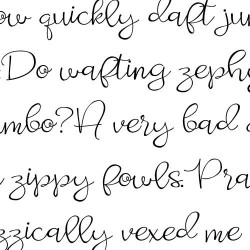 ow quickly daft jum
Do wafting zephy
mbo? A very bad
zippy fowls. Pra
zzically vexed me